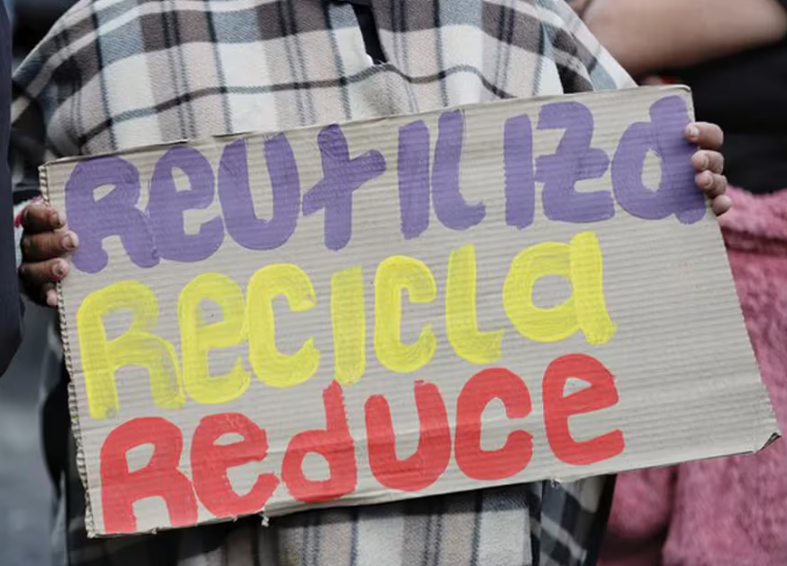 Reutiliza
Recicla
Reduce